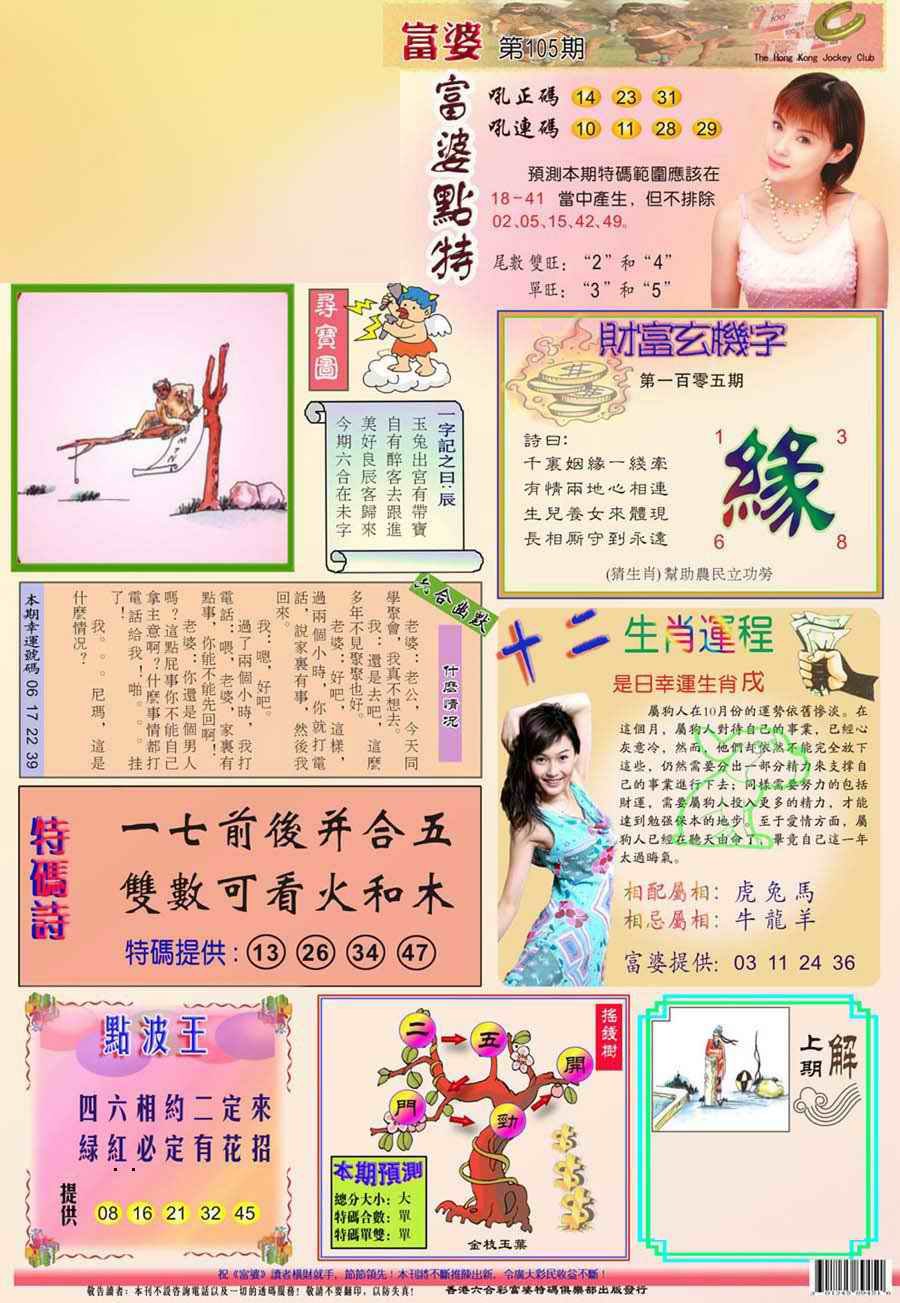 富婆 第105期
The Hong Kong Jockey Club
富婆點特
吼正碼 14 23 31
吼連碼 10 11 28 29
預測本期特碼範圍應該在
18-41 當中產生，但不排除
02、05、15、42、49。
尾數雙旺：“2”和“4”
單旺：“3”和“5”
尋寶圖
一字記之曰：辰
玉兔出宮有帶寶
自有醉客去跟進
美好良辰客歸來
今期六合在未字
財富玄機字
第一百零五期
詩曰:
千裏姻緣一綫牽
有情兩地心相連
生兒養女來體現
長相厮守到永遠
1 3
緣
6 8
(猜生肖)幫助農民立功勞
六合幽默
什麼情况
老婆：老公，今天同
學聚會，我真不想去。
我：還是去吧，這麼
多年不見聚聚也好。
老婆：好吧，這樣，
過兩個小時，你就打電
話，說家裏有事，然後我
回來。
我：嗯，好吧。
過了兩個小時，我打
電話：喂，老婆，家裏有
點事，你能不能先回啊！
老婆：你還是個男人
嗎？這點屁事你不能自己
拿主意啊？什麼事情都打
電話給我！啪。。。挂
了！
我。。。尼瑪，這是
什麼情况？
本期幸運號碼 06 17 22 39
十二生肖運程
是日幸運生肖戌
屬狗人在10月份的運勢依舊慘淡。在
這個月，屬狗人對待自己的事業，已經心
灰意冷，然而，他們却依然不能完全放下
這些，仍然需要分出一部分精力來支撑自
己的事業進行下去；同樣需要努力的包括
財運，需要屬狗人投入更多的精力，才能
達到勉强保本的地步。至于愛情方面，屬
狗人已經在聽天由命了，畢竟自己這一年
太過晦氣。
相配屬相：虎兔馬
相忌屬相：牛龍羊
富婆提供：03 11 24 36
特碼詩
一七前後并合五
雙數可看火和木
特碼提供：13 26 34 47
點波王
四六相約二定來
緑紅必定有花招
提供 08 16 21 32 45
搖錢樹
二 五 開
門 勁
本期預測
總分大小：大
特碼合數：單
特碼單雙：單
金枝玉葉
上期解
祝《富婆》讀者橫財就手，節節領先！本刊將不斷推陳出新，令廣大彩民收益不斷！
敬告讀者：本刊不設咨詢電話以及一切的透碼服務！敬請不要翻印，以防失真！ 香港六合彩富婆特碼俱樂部出版發行